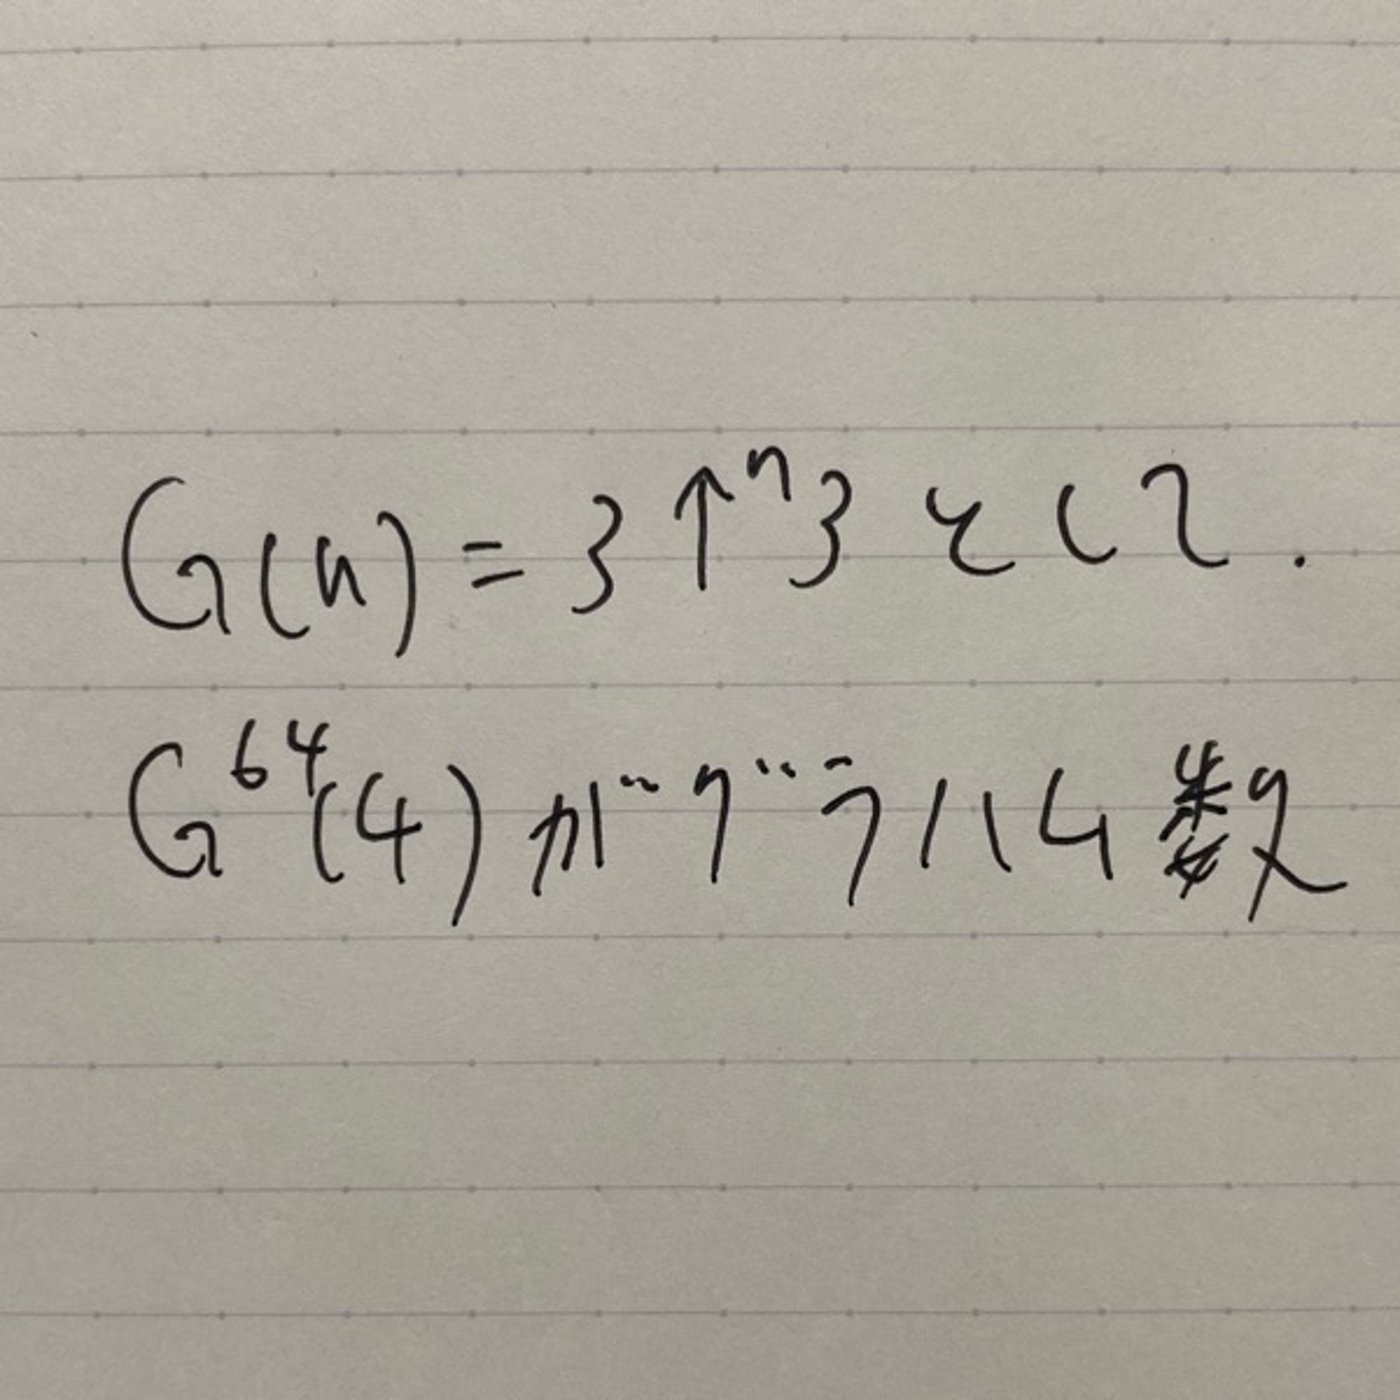 G(n) = 3↑ⁿ3 として.
G⁶⁴(4)がグラハム数